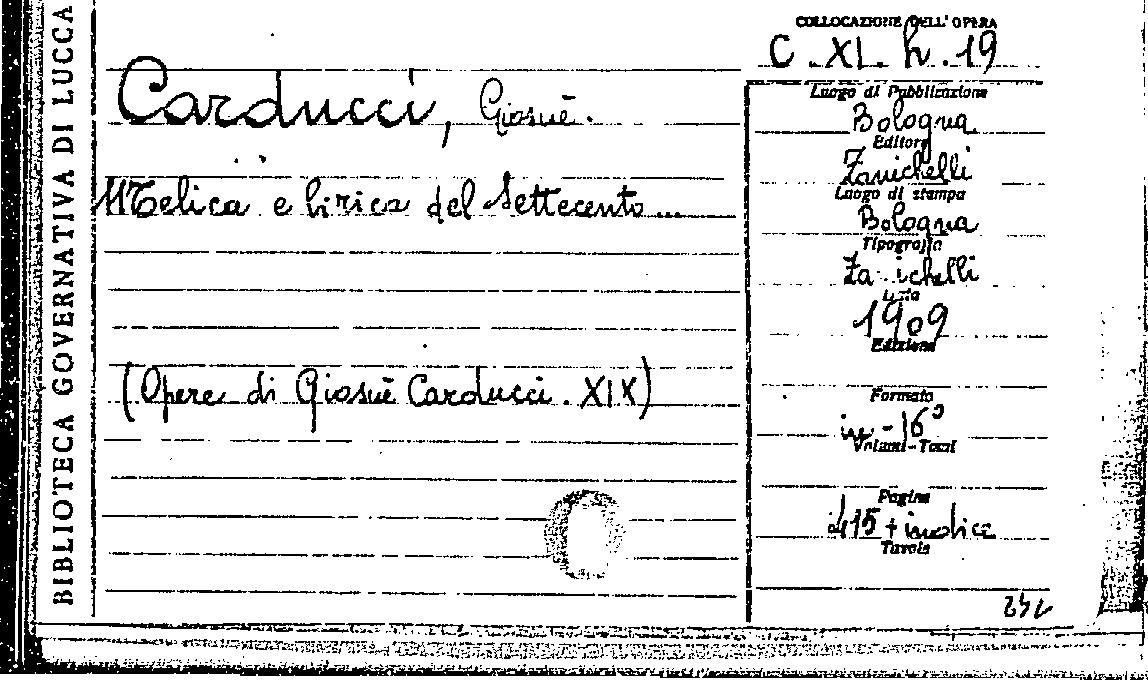 BIBLIOTECA GOVERNATIVA DI LUCCA
COLLOCAZIONE DELL'OPERA
C. XI. h. 19
Carducci, Giosuè.
Melica e lirica del Settecento...
(Opere di Giosuè Carducci. XIX)
Luogo di Pubblicazione
Bologna
Editore
Zanichelli
Luogo di stampa
Bologna
Tipografia
Za ichelli
1909
Edizione
Formato
in-16°
Volumi-Tomi
Pagine
415 + indice
Tavole